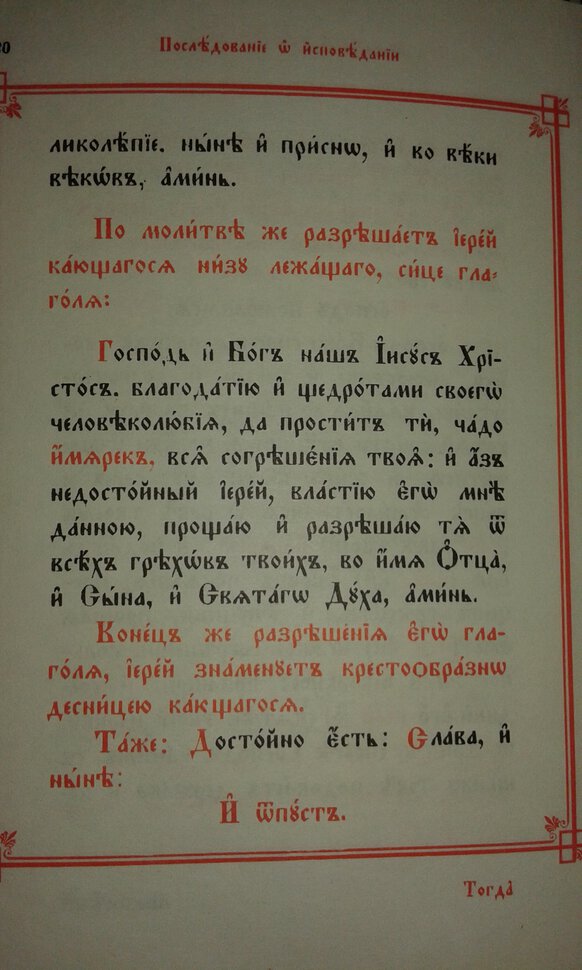 Послѣ́дованїе ѡ҆ и҆сповѣ́данїи
ликолѣ́пїе. ны́нѣ и҆ при́снѡ, и҆ во вѣ́ки
вѣкѡ́въ, а҆ми́нь.
По моли́твѣ же разрѣша́етъ і҆ере́й
ка́ющагося ни́зу лежа́щаго, си́це гла-
го́ля:
Госпо́дь и҆ Бо́гъ на́шъ І҆исꙋ́съ Хрі-
сто́съ. благода́тїю и҆ щедро́тами своегѡ̀
человѣколю́бїѧ, да прости́тъ тѝ, ча́до
и҆́мѧрекъ, всѧ̑ согрѣше́нїѧ твоѧ̑: и҆ а҆́зъ
недосто́йный і҆ере́й, вла́стїю є҆гѡ̀ мнѣ̀
да́нною, проща́ю и҆ разрѣша́ю тѧ̀ ѿ
всѣ́хъ грѣхѡ́въ твои́хъ, во и҆́мѧ Ѻ҆тца̀,
и҆ Сы́на, и҆ Свѧта́гѡ Дꙋ́ха, а҆ми́нь.
Коне́цъ же разрѣше́нїѧ є҆гѡ̀ гла-
го́лѧ, і҆ере́й зна́менꙋетъ крестоѻбра́знѡ
десни́цею ка́кщагосѧ.
Та́же: Досто́йно є҆́сть: Сла́ва, и҆
ны́нѣ:
И҆ ѿпꙋ́стъ.
Тогда̀